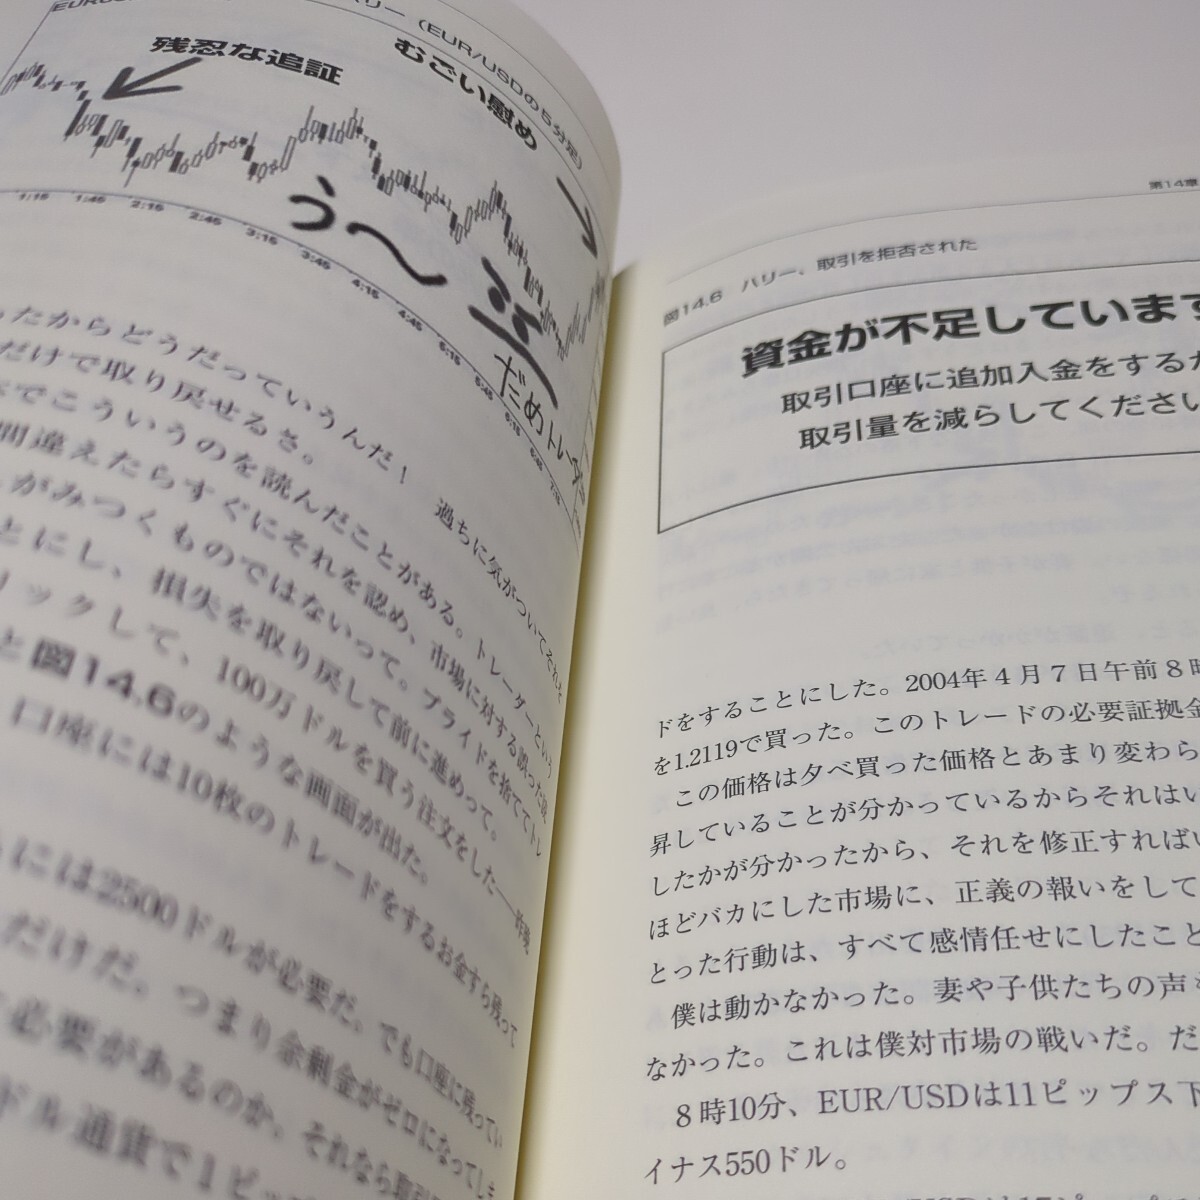 リー（EUR/USDの5分足）
残忍な追証
むごい慰め
1:15 1:45 2:15 2:45 3:15 3:45 4:15 4:45 5:15 5:45 6:15 6:45 7:15
う〜
だめトレーダー
ったからどうだっていうんだ！　過ちに気がついてそれを
だけで取り戻せるさ。
でこういうのを読んだことがある。トレーダーという
間違えたらすぐにそれを認め、市場に対する誤った
しがみつくものではないって。プライドを捨ててトレ
とにし、損失を取り戻して前に進めって。
リックして、100万ドルを買う注文をした――昨晩
と図14.6のような画面が出た。
口座には10枚のトレードをするお金すら残って
には2500ドルが必要だ。でも口座に残ってい
だけだ。つまり余剰金がゼロになってしま
必要があるのか。それなら取引
ドル通貨で1ピッ
第14章
図14.6　ハリー、取引を拒否された
資金が不足しています
取引口座に追加入金をするか
取引量を減らしてください
ドをすることにした。2004年4月7日午前8時
を1.2119で買った。このトレードの必要証拠金
この価格は夕べ買った価格とあまり変わら
昇していることが分かっているからそれはい
したかが分かったから、それを修正すればい
ほどバカにした市場に、正義の報いをして
とった行動は、すべて感情任せにしたこと
僕は動かなかった。妻や子供たちの声も
なかった。これは僕対市場の戦いだ。だ
8時10分、EUR/USDは11ピップス下
イナス550ドル。